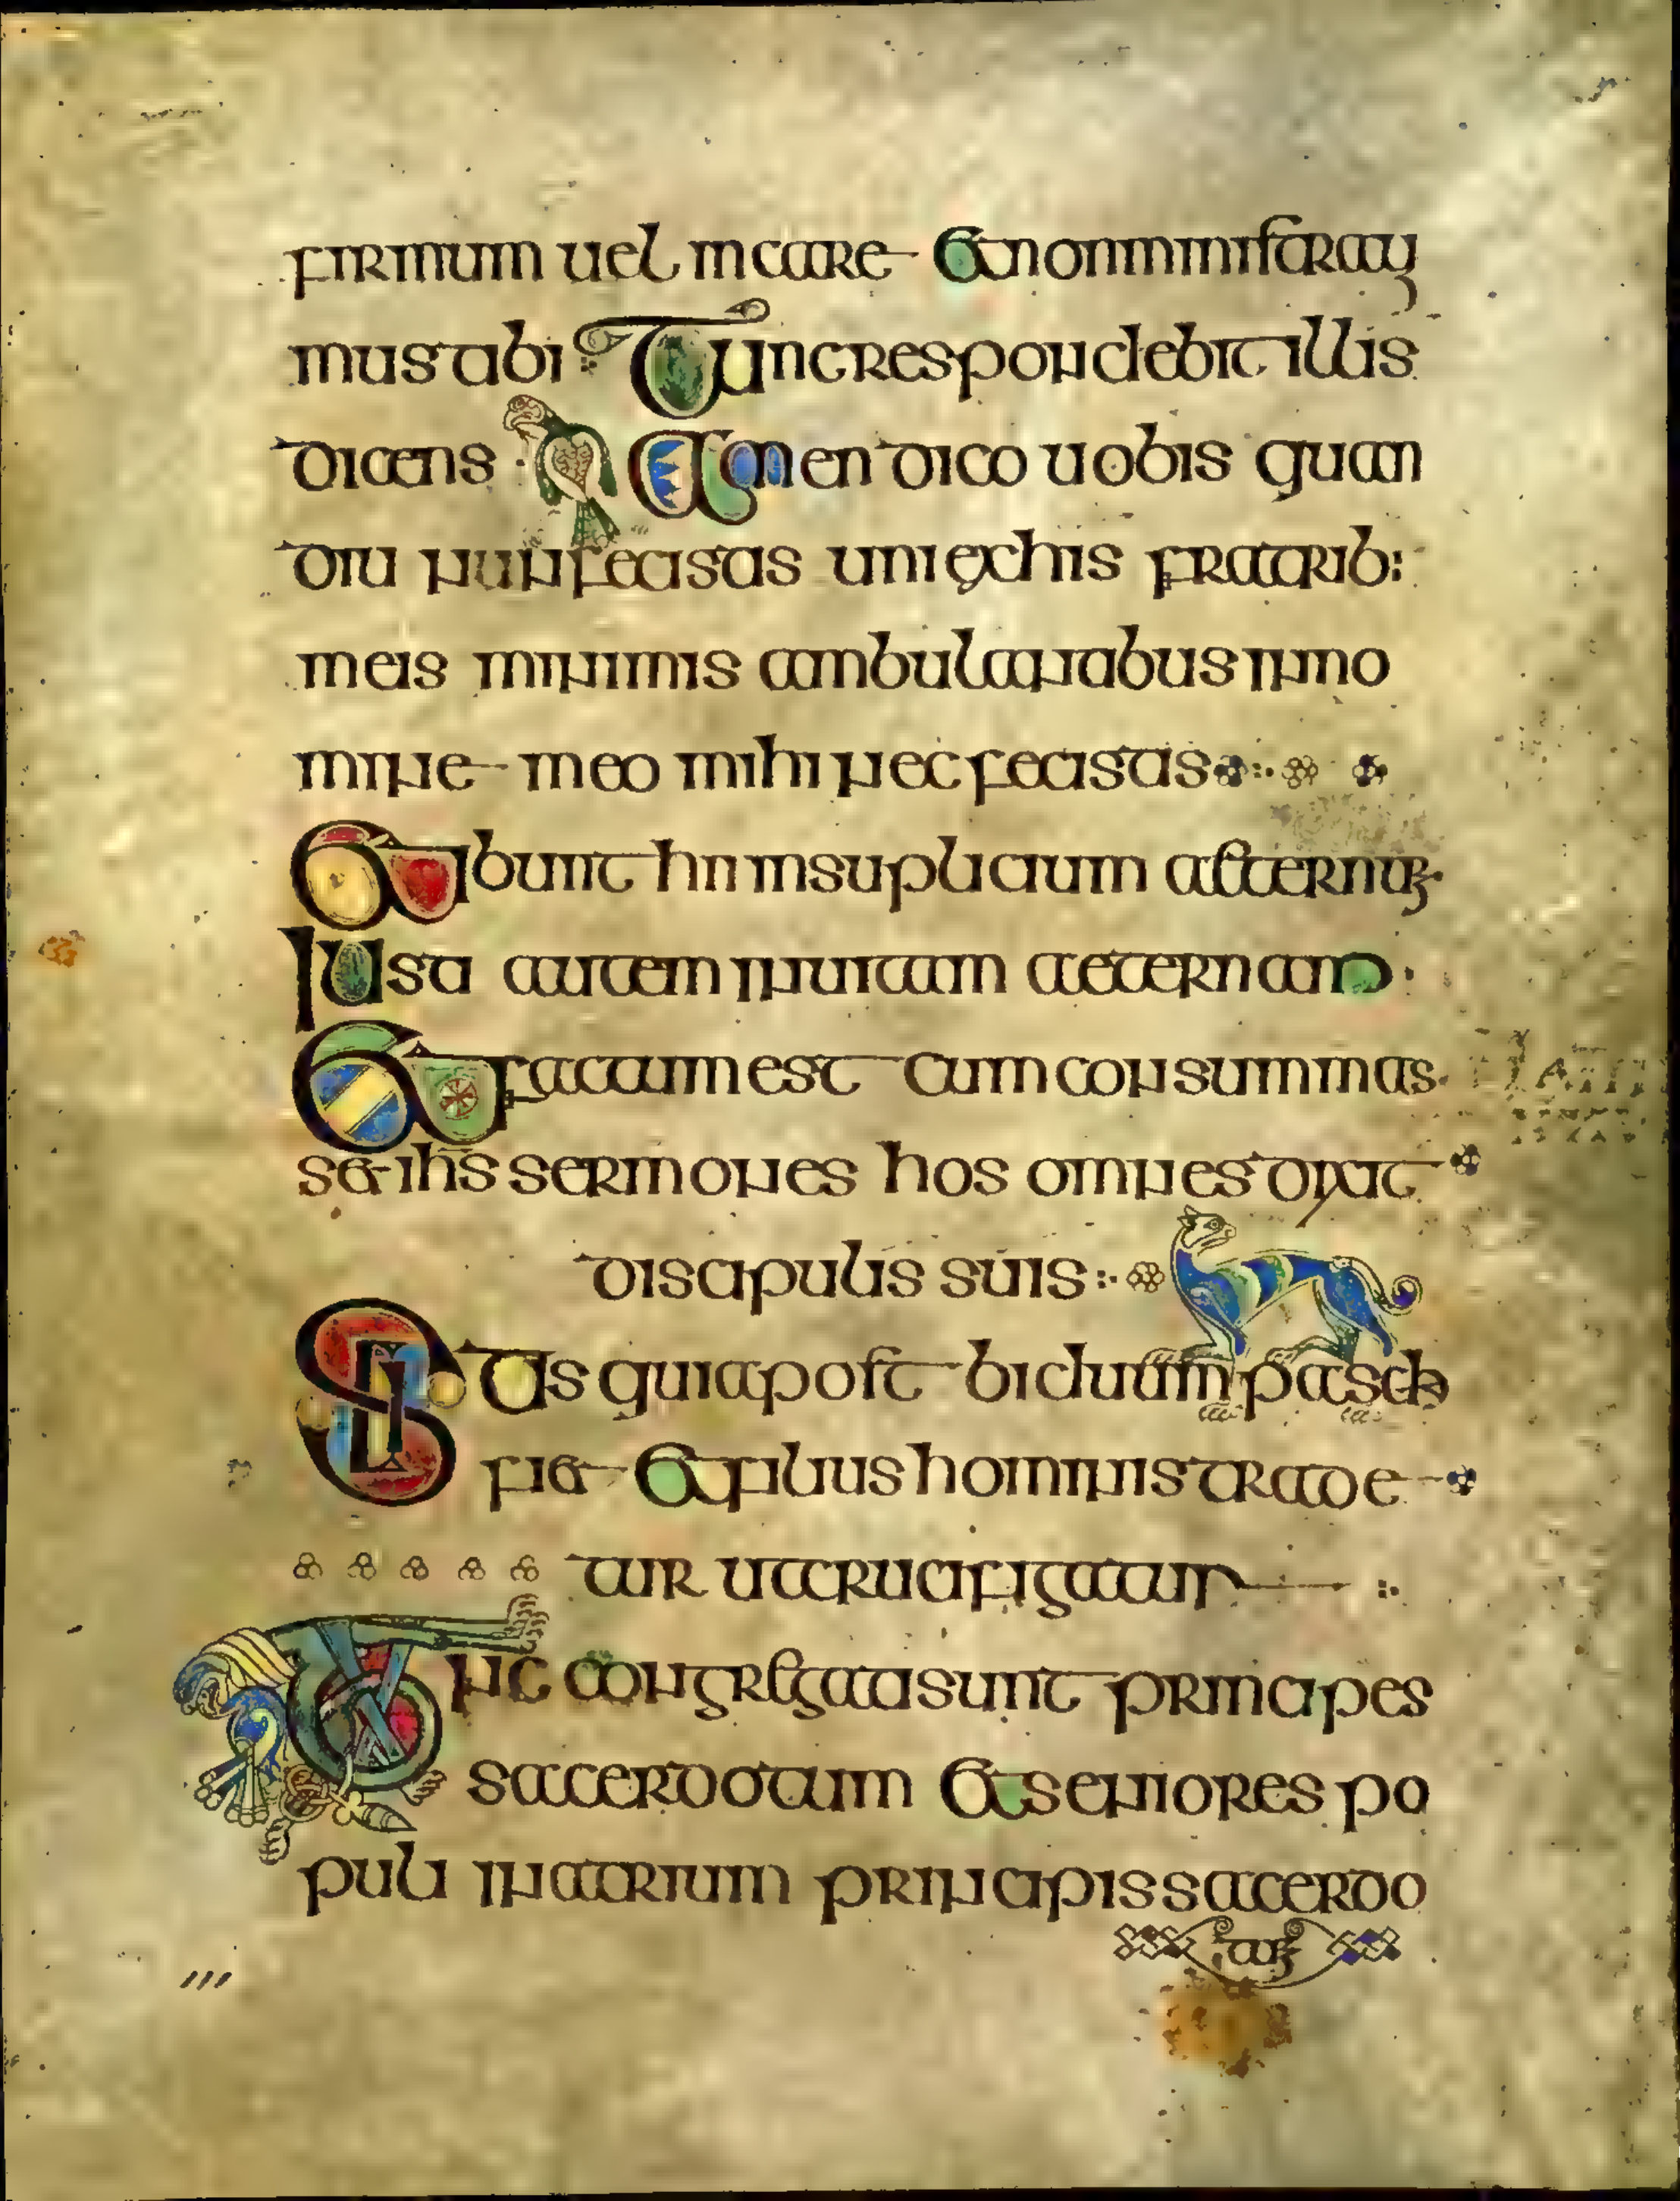 firmum uel incarcere et non ministraui
mus tibi Tunc respondebit illis
dicens Amen dico uobis quan
diu nunfecistis uni exhis fratrib:
meis minimis ambulantibus inno
mine meo mihi nec fecistis
Et ibunt hii insuplicium aeternum
Iusti autem inuitam aeternam
Et factum est cum consummas
set ihs sermones hos omnes dixit
discipulis suis
Scitis quia post biduum pascha
fiet et filius hominis trade
tur ut crucifigatur
Tunc congregati sunt principes
sacerdotum et seniores po
puli inatrium principis sacerdo
tum